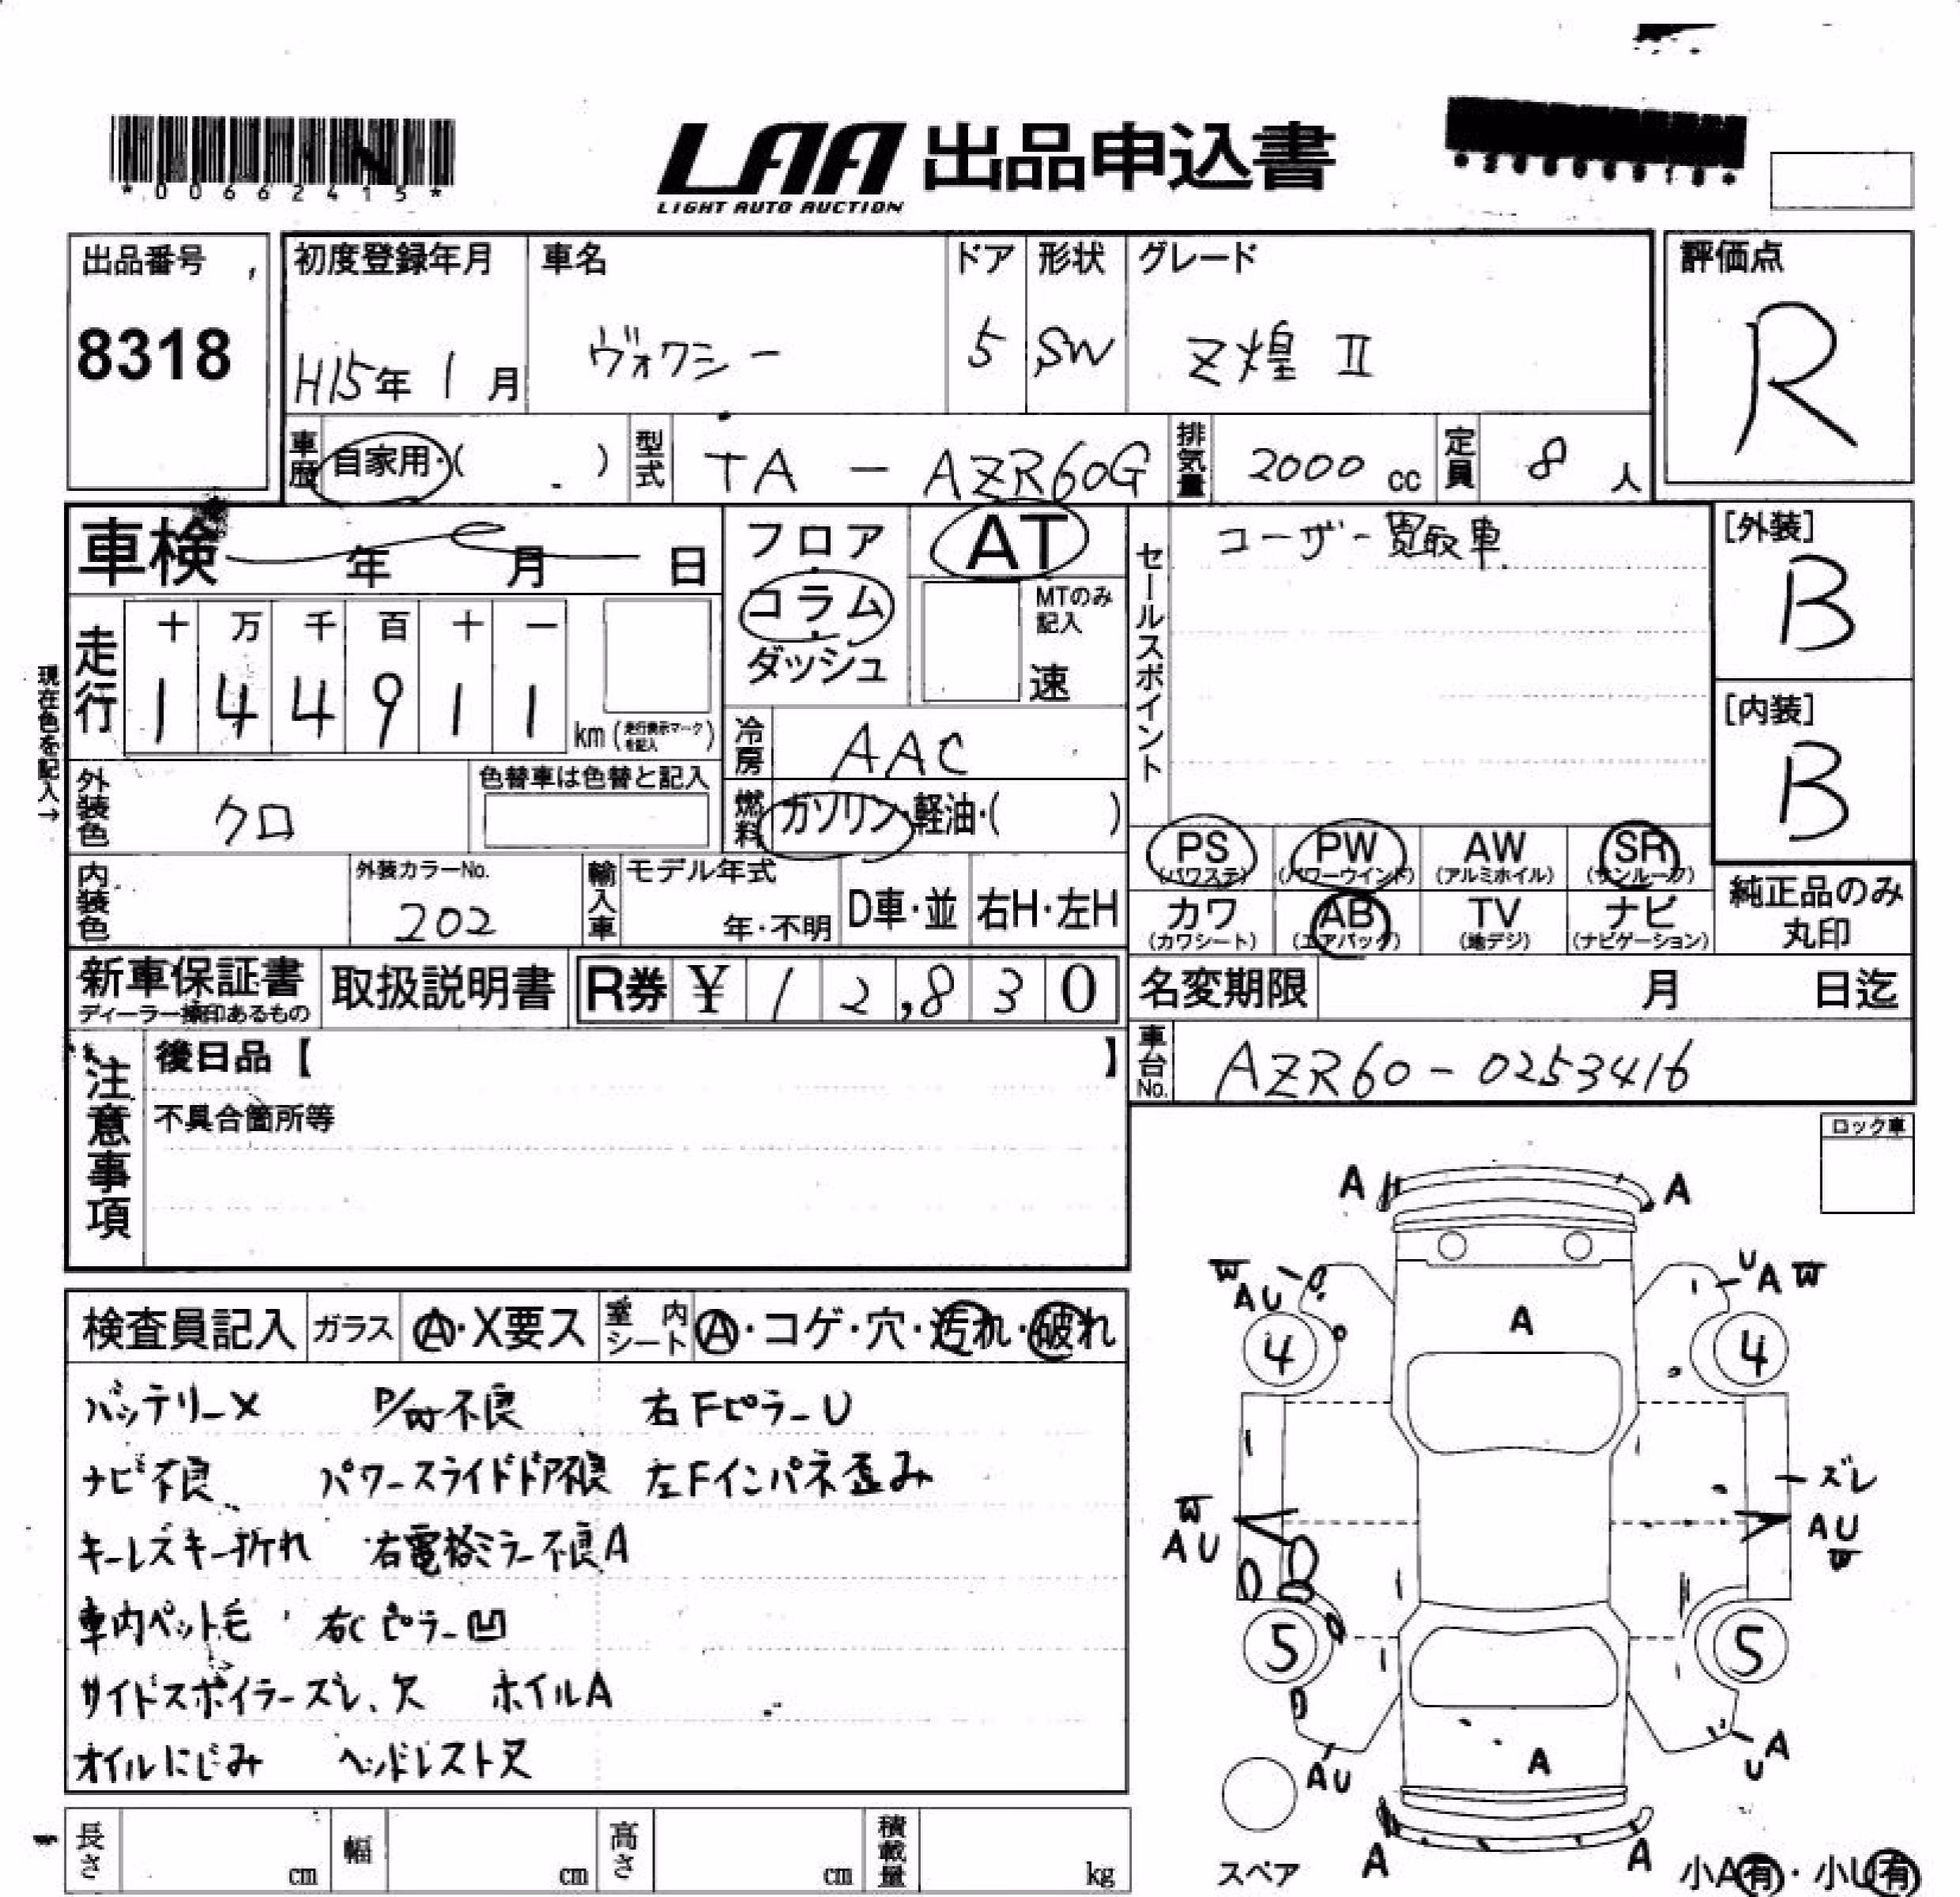 *00662415*
LAA 出品申込書
LIGHT AUTO AUCTION
出品番号 8318
初度登録年月 H15年 1月
車名 ヴォクシー
ドア 5
形状 SW
グレード Z煌 Ⅱ
評価点 R
車歴 自家用・( )
型式 TA - AZR60G
排気量 2000 cc
定員 8 人
車検 年 月 日
フロア
コラム
ダッシュ
AT
MTのみ記入
速
セールスポイント
ユーザー買取車
[外装] B
[内装] B
現在色を記入→
走行 十 万 千 百 十 一
1 4 4 9 1 1 km (走行表示マークを記入)
冷房 AAC
燃料 ガソリン・軽油・( )
外装色 クロ
色替車は色替と記入
内装色
外装カラーNo. 202
輸入車 モデル年式 年・不明
D車・並 右H・左H
PS (パワステ) PW (パワーウインド) AW (アルミホイル) SR (サンルーフ)
カワ (カワシート) AB (エアバッグ) TV (地デジ) ナビ (ナビゲーション)
純正品のみ丸印
新車保証書
ディーラー捺印あるもの
取扱説明書
R券 ¥ 1 2,8 3 0
名変期限 月 日迄
車台No. AZR60-0253416
注意事項
後日品【 】
不具合箇所等
ロック車
検査員記入 ガラス A・X要ス 室内シート A・コゲ・穴・汚れ・破れ
バッテリーX P/W不良 右FピラーU
ナビ不良 パワースライドドア不良 左Fインパネ歪み
キーレスキー折れ 右電格ミラー不良A
車内ペット毛 右Cピラー凹
サイドスポイラーズレ、欠 ホイルA
オイルにじみ ヘッドレスト欠
A A
W AU
U A W
4 A 4
ズレ
W AU
AU W
5 5
AU A
U A
A A
スペア
小A有・小U有
長さ cm 幅 cm 高さ cm 積載量 kg